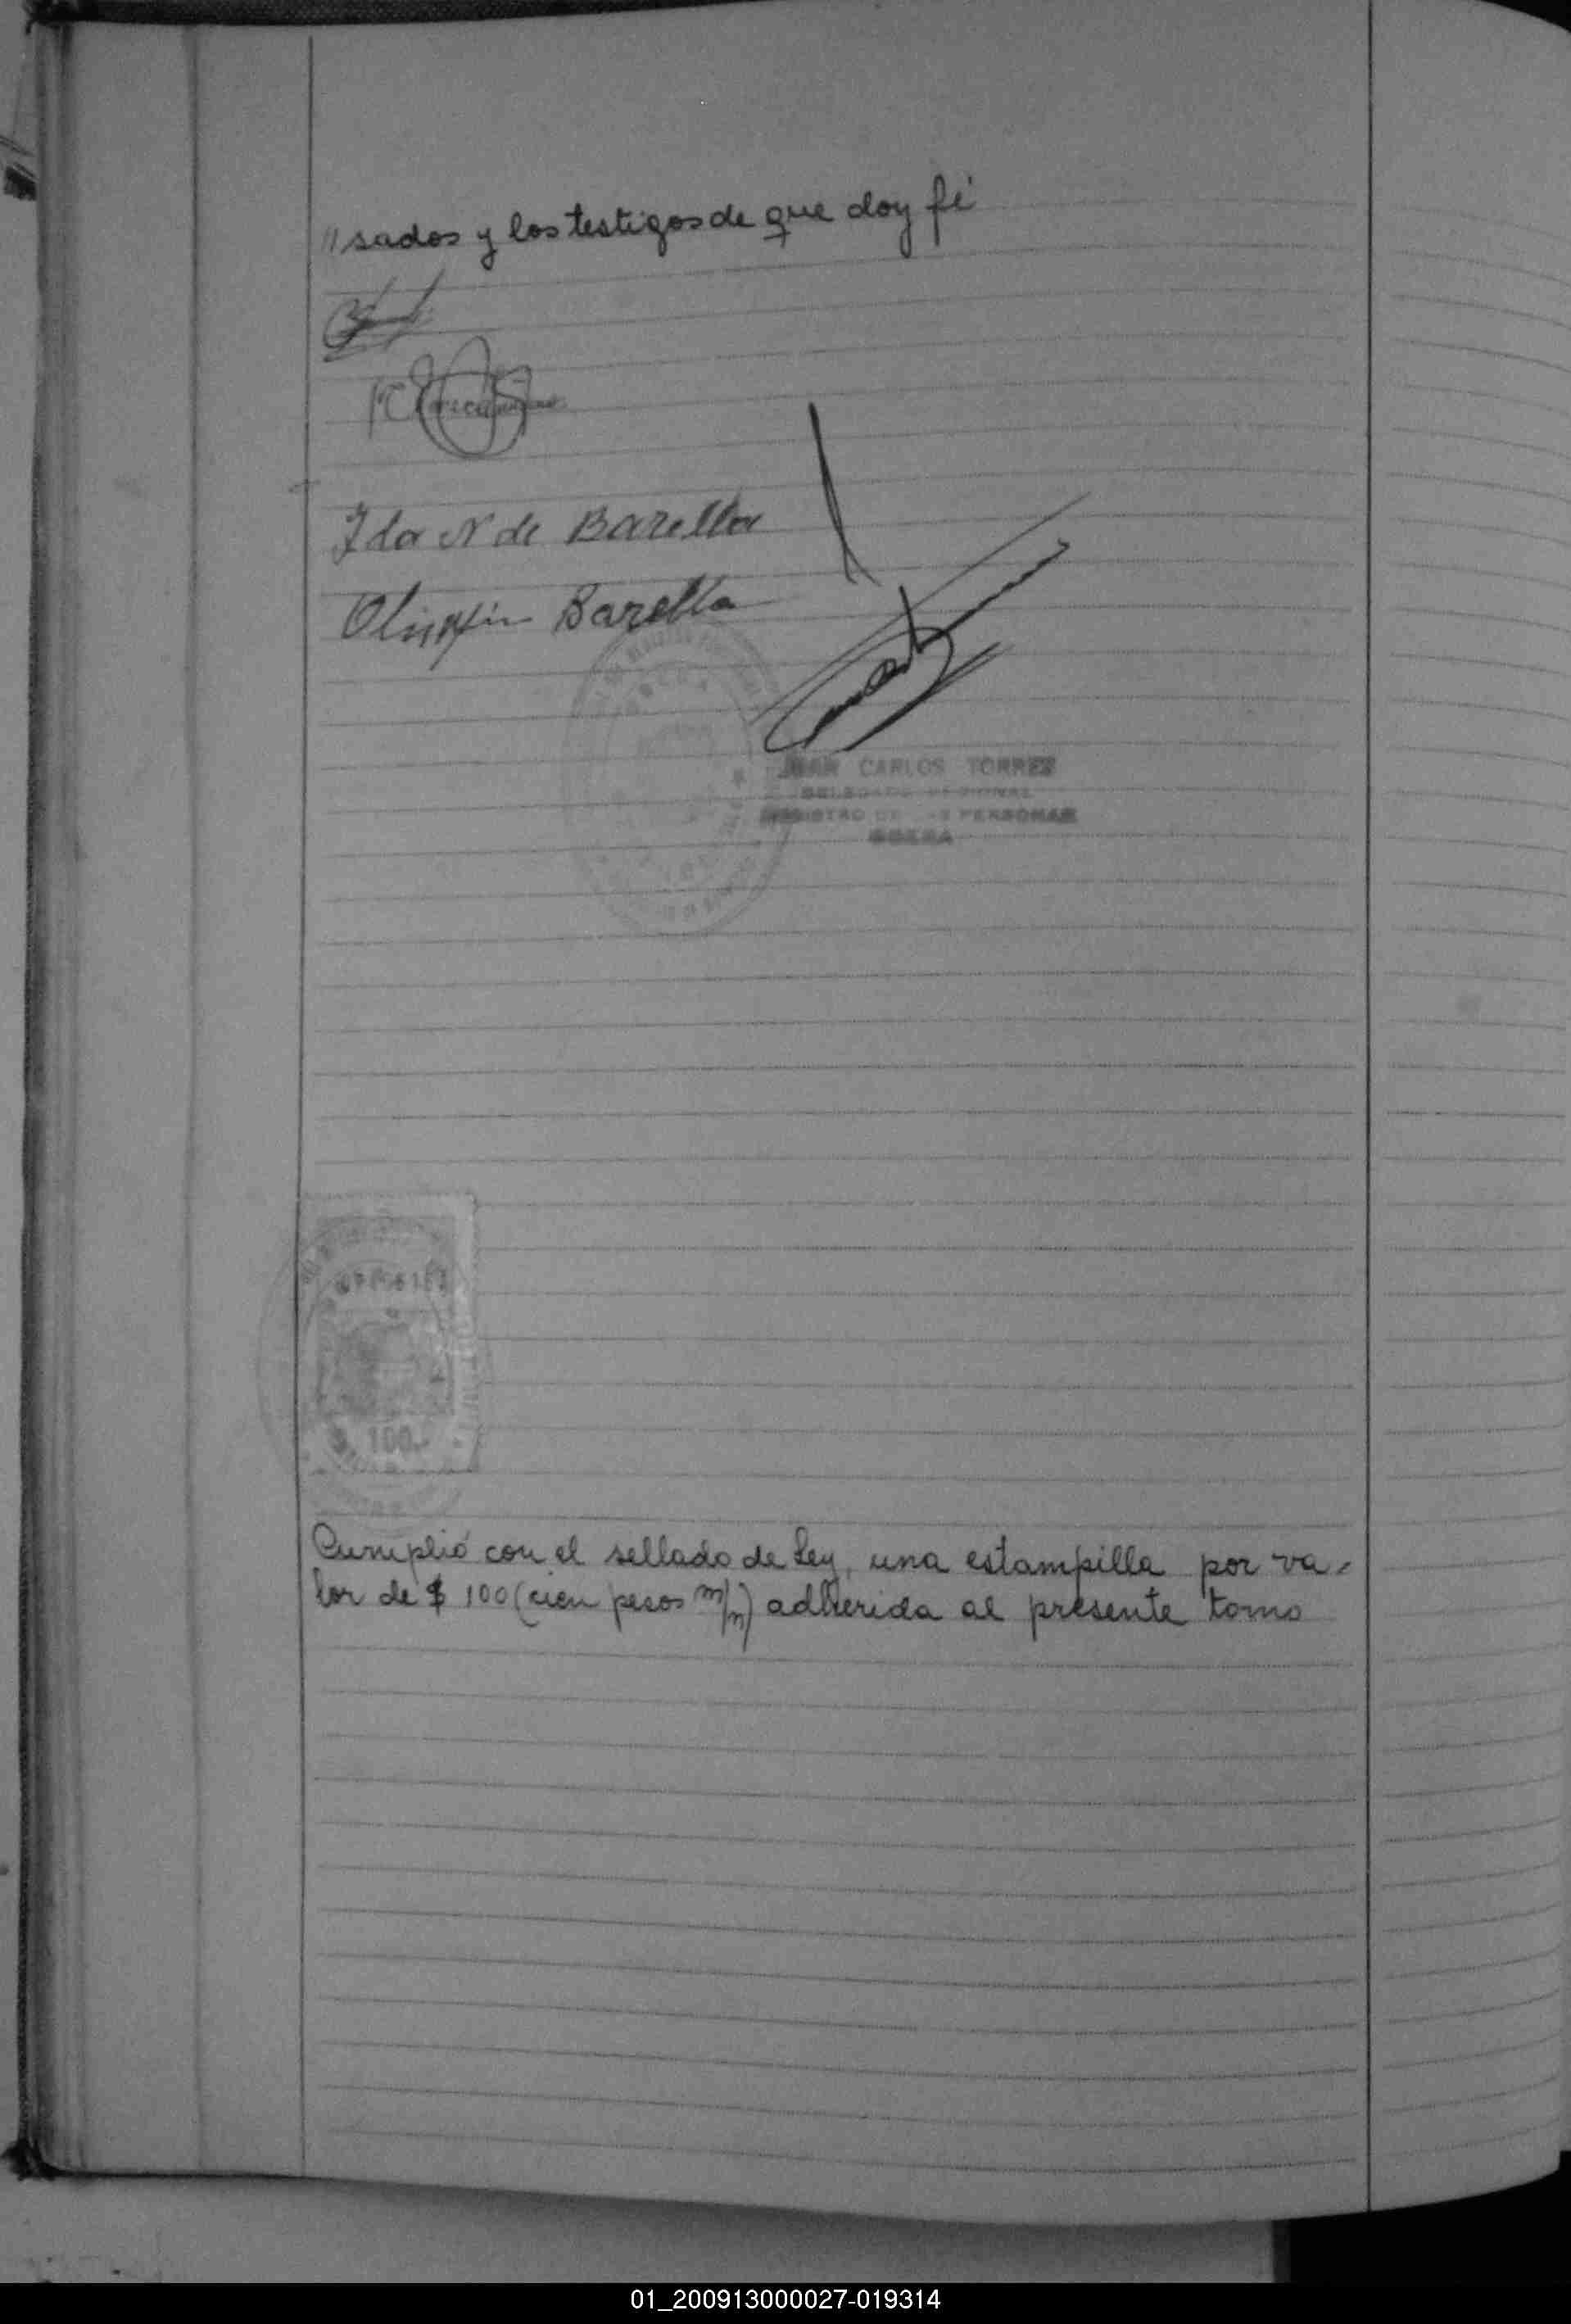 //sados y los testigos de que doy fé
Ida N de Barella
Olimpio Barella
JUAN CARLOS TORRES
DELEGADO REGIONAL
REGISTRO DE LAS PERSONAS
100.-
Cumplió con el sellado de Ley, una estampilla por va-
lor de $ 100 (cien pesos m/n) adherida al presente tomo
01_200913000027-019314